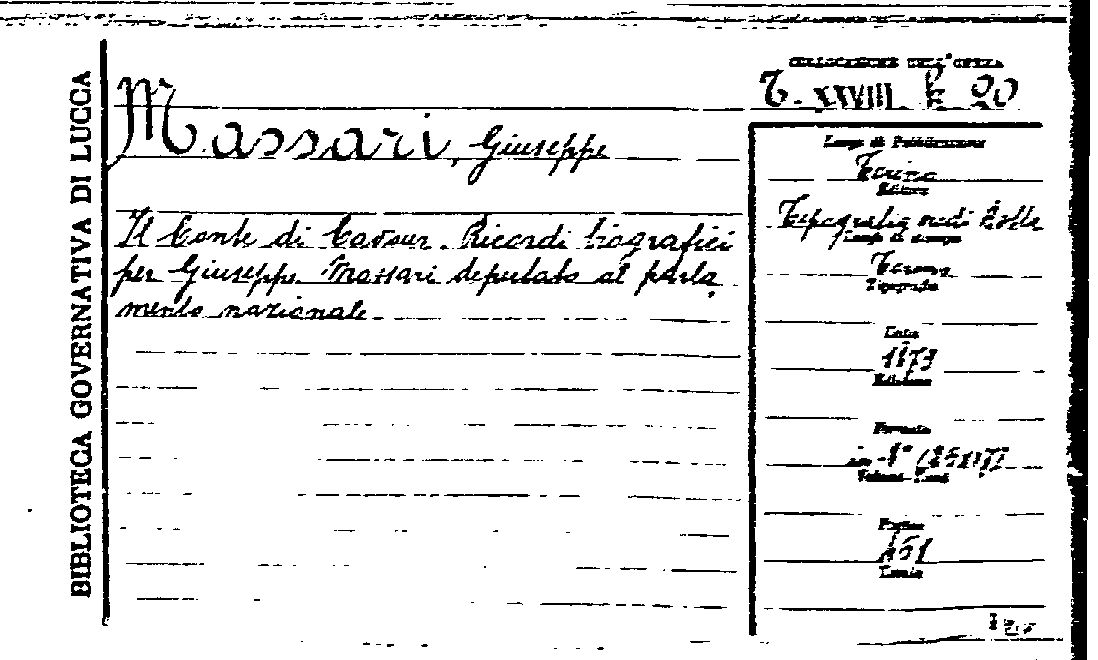 BIBLIOTECA GOVERNATIVA DI LUCCA
COLLOCAZIONE DELL'OPERA
T. XXVIII. b. 20
Massari, Giuseppe
Il Conte di Cavour. Ricordi biografici
per Giuseppe Massari deputato al parla
mento nazionale.
Luogo di Pubblicazione
Torino
Editore
Tipografia eredi Botta
Luogo di stampa
Torino
Tipografia
Data
1873
Edizione
Formato
in-8° (25x17)
Volume-Tomi
Pagine
451
Tavole